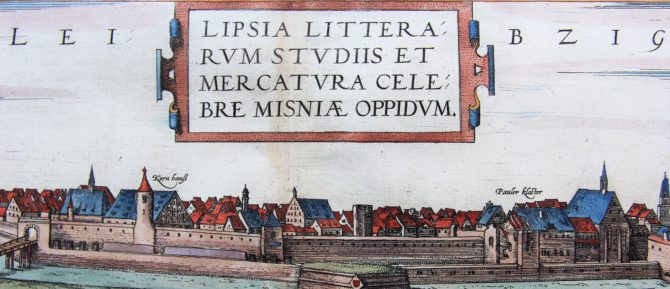 LEI BZIG
LIPSIA LITTERA⸗
RVM STVDIIS ET
MERCATVRA CELE⸗
BRE MISNIÆ OPPIDVM.
Korn hauß
Pauler kloster